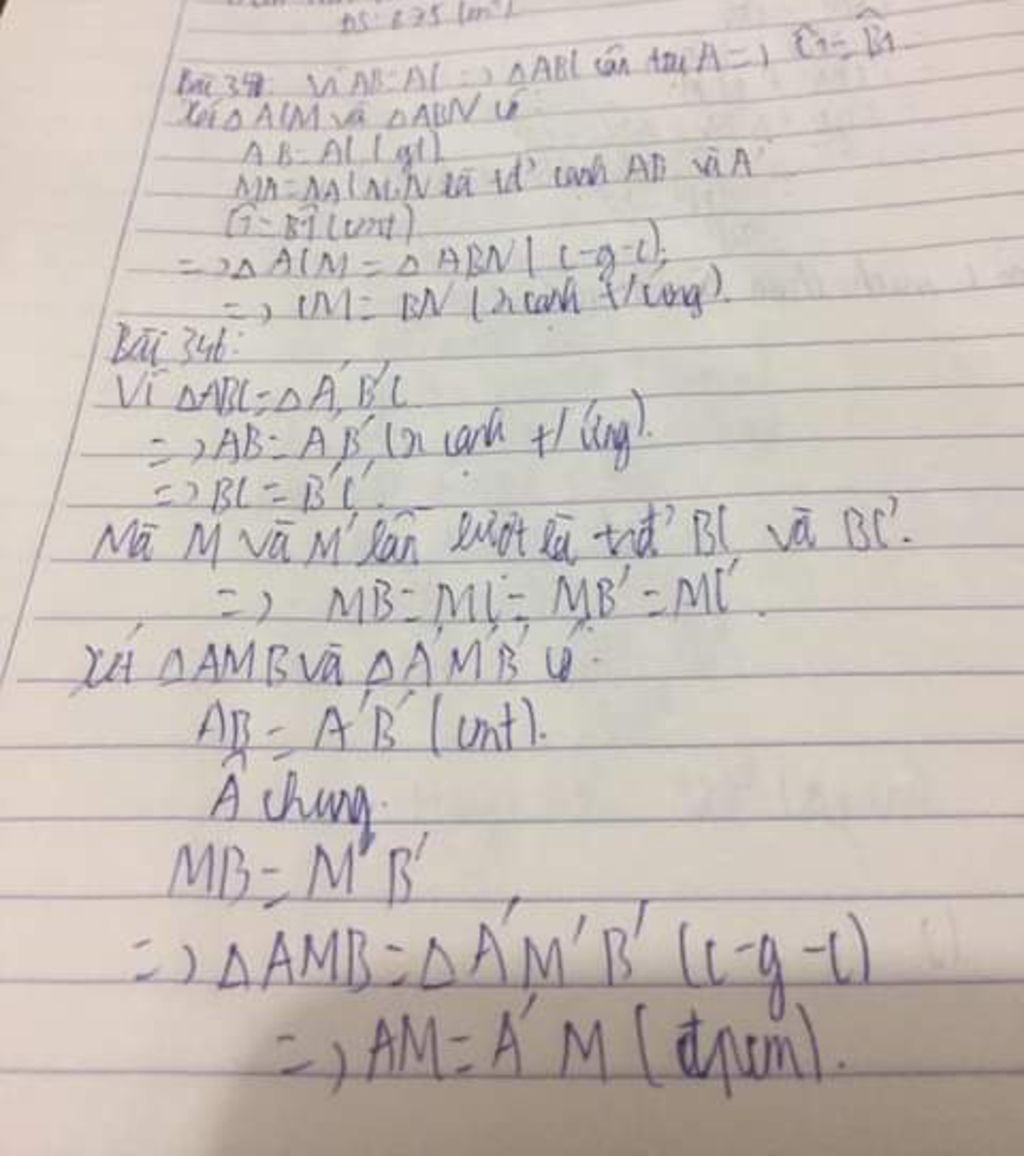 ĐS: 675 (m²)
Bài 34: Vì AB=AC => △ABC cân tại A => Ĉ1=B̂1
Xét △ACM và △ABN có
AB=AC (gt)
MA=NA (M,N là tđ' cạnh AB và A
Ĉ1=B̂1 (cmt)
=> △ACM = △ABN (c-g-c)
=> CM = BN (2 cạnh t/ứng).
Bài 346:
Vì △ABC=△A'B'C
=> AB=A'B' (2 cạnh t/ứng).
=> BC = B'C'.
Mà M và M' lần lượt là trđ' BC và BC'.
=> MB=MC=MB'=MC'.
Xét △AMB và △A'M'B' có:
AB = A'B' (cmt).
Â chung.
MB = M'B'
=> △AMB=△A'M'B' (c-g-c)
=> AM=A'M (đpcm).